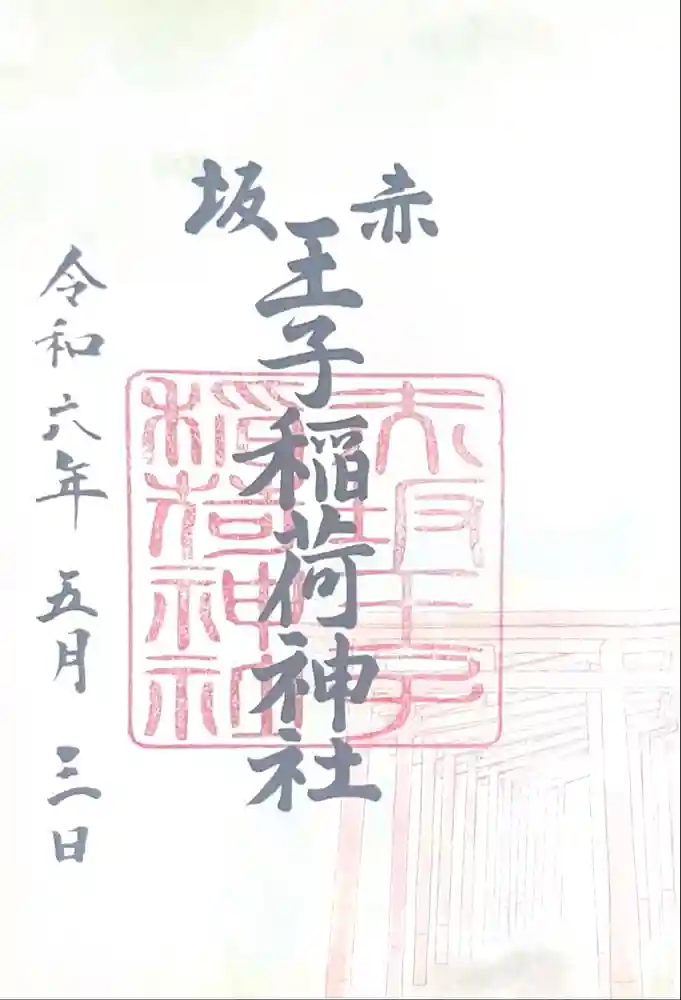 赤坂
王子稲荷神社
赤坂王子
稲荷神社
令和六年 五月 三日